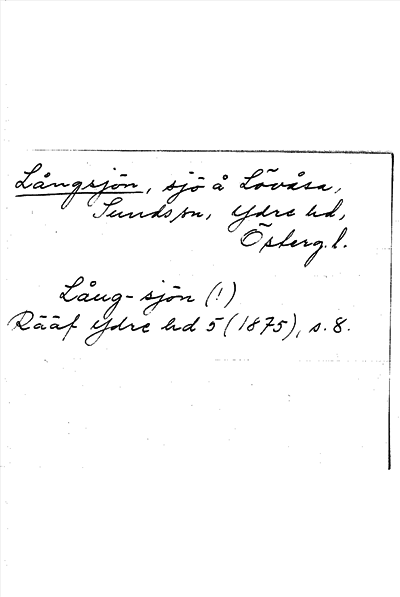 Långsjön, sjö å Lövåsa,
Sunds sn, Ydre hd,
Österg. l.
Lång-sjön (!)
Rääf Ydre hd 5 (1875), s. 8.